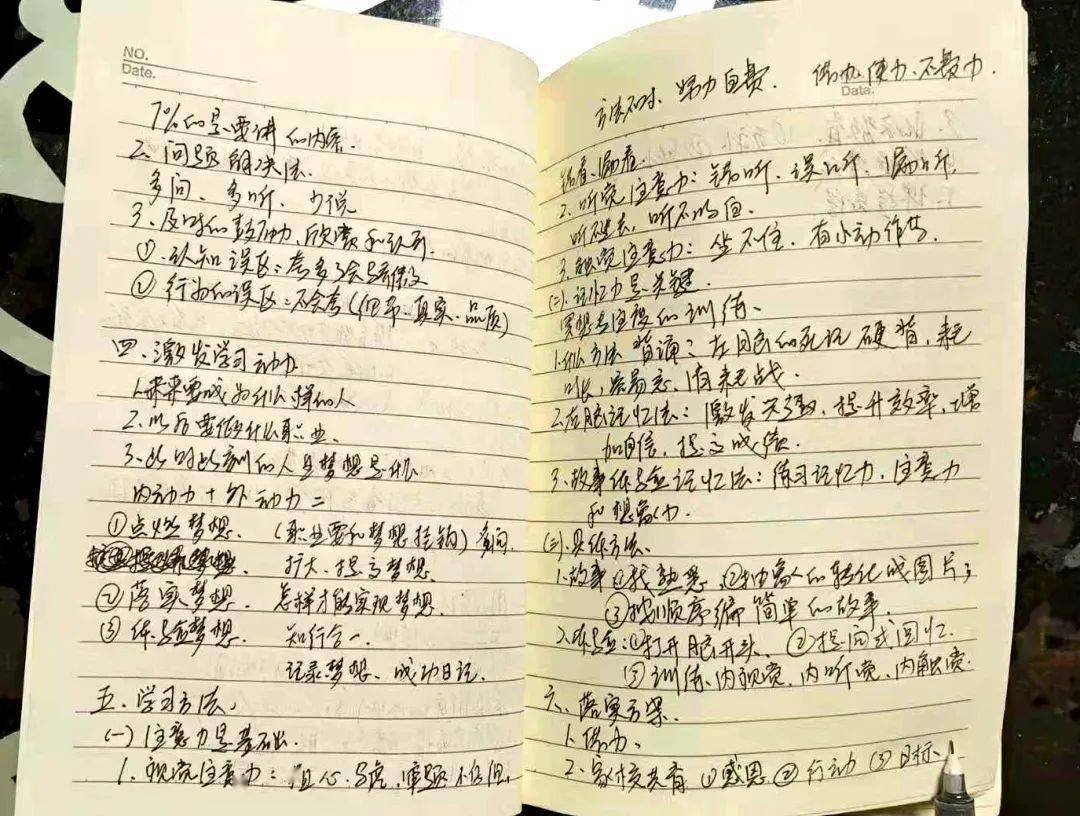 NO.
Date.
7%的是要讲的内容.
2. 问题解决法.
多问、多听、少说
3、及时的鼓励、欣赏和认可.
①.认知误区:
②行为的误区:不会夸(细节、真实、品质)
四、激发学习动力
1.未来要成为什么样的人
2.以后要做什么职业.
3、此时此刻的人且梦想是什么
内动力+外动力=
①点燃梦想. (职业要和梦想挂钩)多问.
扩大、提高梦想.
②落实梦想. 怎样才能实现梦想.
③体验梦想. 知行合一.
记录梦想、成功日记.
五、学习方法.
(一)注意力是基础.
1.视觉注意力:粗心、马虎,审题不仔细,
方法不对、努力白费. 借力、使力、不费力.
Date.
错看、漏看.
2.听觉注意力:错听、误听、漏听.
听不进去,听不明白.
3.触觉注意力:坐不住,有小动作等.
(二).记忆力是关键.
1.什么方法 背诵:左脑的死记硬背,耗
时长,容易忘,
2.右脑记忆法:激发兴趣,提升效率,增
加自信,提高成绩.
3.故事体验记忆法:练习记忆力,注意力
和想象力.
(三).具体方法.
1.故事①找熟悉,②抽象的转化成图片;
③找顺序编简单的故事.
2.体验:①打开脑开头,②提问式回忆.
③训练、内视觉,内听觉,内触觉.
六、落实方案.
1.借力、
2、家校共育 ①感恩②行动③目标、